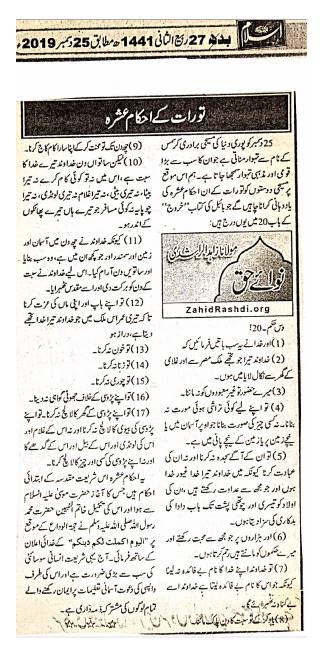 اسلام
بدھ 27 ربیع الثانی 1441ھ مطابق 25 دسمبر 2019ء
تورات کے احکام عشرہ
25 دسمبر کو پوری دنیا کی مسیحی برادری کرسمس
کے نام سے تہوار مناتی ہے جو ان کا سب سے بڑا
قومی اور مذہبی تہوار سمجھا جاتا ہے۔ ہم اس موقع
پر مسیحی دوستوں کو تورات کے ان احکام عشرہ کی
یاد دہانی کرانا چاہیں گے جو بائبل کی کتاب ”خروج“
کے باب 20 میں یوں درج ہیں:
مولانا زاہد الراشدی
نوائے حق
ZahidRashdi.org
دس حکم۔ 20!
(1) اور خدا نے یہ سب باتیں فرمائیں کہ
(2) خداوند تیرا خدا جو تجھے ملک مصر سے اور غلامی
کے گھر سے نکال لایا میں ہوں۔
(3) میرے حضور تو غیر معبودوں کو نہ ماننا۔
(4) تو اپنے لیے کوئی تراشی ہوئی مورت نہ
بنانا۔ نہ کسی چیز کی صورت بنانا جو اوپر آسمان میں یا
نیچے زمین پر یا زمین کے نیچے پانی میں ہے۔
(5) تو ان کے آگے سجدہ نہ کرنا اور نہ ان کی
عبادت کرنا کیونکہ میں خداوند تیرا خدا غیور خدا
ہوں اور جو مجھ سے عداوت رکھتے ہیں ان کی
اولاد کو تیسری اور چوتھی پشت تک باپ دادا کی
بدکاری کی سزا دیتا ہوں۔
(6) اور ہزاروں پر جو مجھ سے محبت رکھتے اور
میرے حکموں کو مانتے ہیں رحم کرتا ہوں۔
(7) تو خداوند اپنے خدا کا نام بے فائدہ نہ لینا
کیونکہ جو اس کا نام بے فائدہ لیتا ہے خداوند اسے
بے گناہ نہ ٹھہرائے گا۔
(8) یاد کر کے تو سبت کا دن پاک ماننا۔
(9) چھ دن تک تو محنت کر کے اپنا سارا کام کاج کرنا۔
(10) لیکن ساتواں دن خداوند تیرے خدا کا
سبت ہے، اس میں نہ تو کوئی کام کرے نہ تیرا
بیٹا، نہ تیری بیٹی، نہ تیرا غلام نہ تیری لونڈی، نہ تیرا
چوپایہ نہ کوئی مسافر جو تیرے ہاں تیرے پھاٹکوں
کے اندر ہو۔
(11) کیونکہ خداوند نے چھ دن میں آسمان اور
زمین اور سمندر اور جو کچھ ان میں ہے، وہ سب بنایا
اور ساتویں دن آرام کیا۔ اس لیے خداوند نے سبت
کے دن کو برکت دی اور اسے مقدس ٹھہرایا۔
(12) تو اپنے باپ اور اپنی ماں کی عزت کرنا
تاکہ تیری عمر اس ملک میں جو خداوند تیرا خدا تجھے
دیتا ہے، دراز ہو
(13) تو خون نہ کرنا۔
(14) تو زنا نہ کرنا۔
(15) تو چوری نہ کرنا۔
(16) تو اپنے پڑوسی کے خلاف جھوٹی گواہی نہ دینا۔
(17) تو اپنے پڑوسی کے گھر کا لالچ نہ کرنا۔ تو اپنے
پڑوسی کی بیوی کا لالچ نہ کرنا اور نہ اس کے غلام اور
اس کی لونڈی اور اس کے بیل اور اس کے گدھے کا
اور نہ اپنے پڑوسی کی کسی اور چیز کا لالچ کرنا۔
یہ احکام عشرہ اس شریعت مقدسہ کے ابتدائی
احکام ہیں جس کا آغاز حضرت موسیٰ علیہ السلام
سے ہوا اور اس کی تکمیل خاتم النبیین حضرت محمد
رسول اللہ صلی اللہ علیہ وسلم نے حجۃ الوداع کے موقع
پر ”الیوم اکملت لکم دینکم“ کے خدائی اعلان
کے ساتھ فرمائی۔ آج یہی شریعت انسانی سوسائٹی
کی سب سے بڑی ضرورت ہے اور اس کی طرف
لوگوں کی دعوت آسمانی تعلیمات پر ایمان رکھنے والے
تمام لوگوں کی مشترکہ ذمہ داری ہے۔